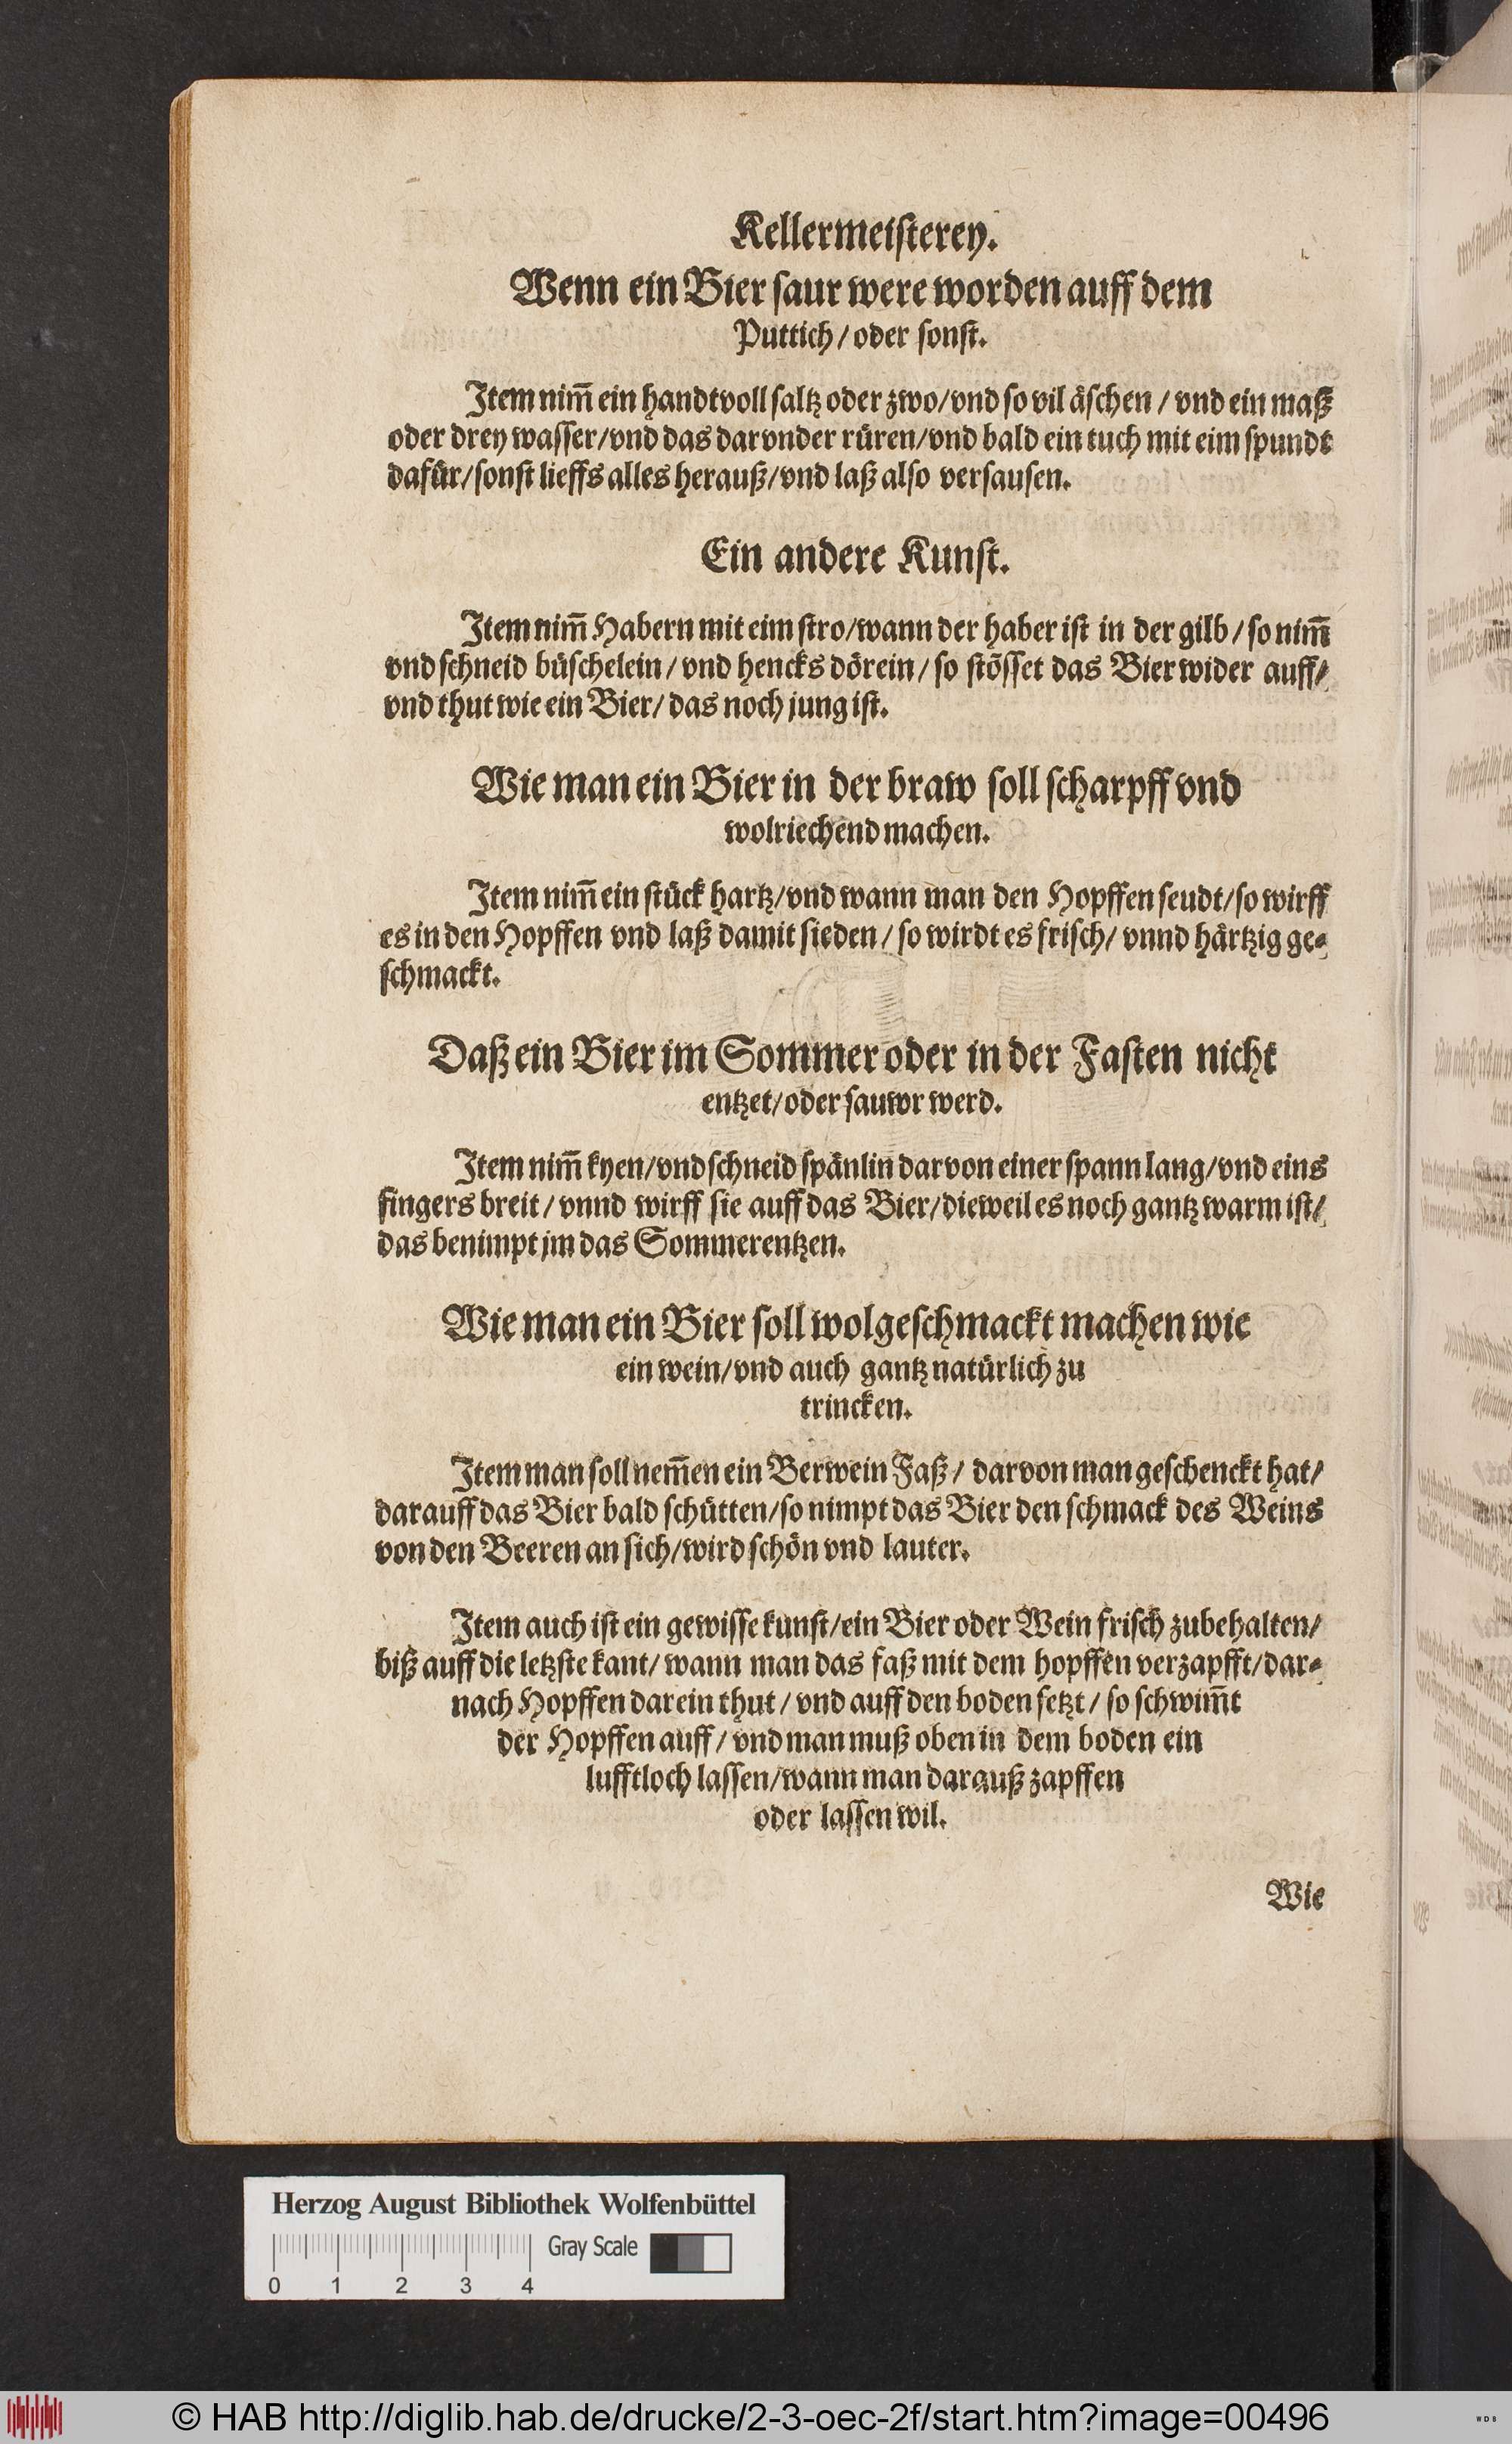 Kellermeiſterey.
Wenn ein Bier ſaur were worden auff dem
Puttich / oder ſonſt.
Item nim̃ ein handtvoll ſaltz oder zwo / vnd ſo vil äſchen / vnd ein maß
oder drey waſſer / vnd das darvnder rüren / vnd bald ein tuch mit eim ſpundt
dafür / ſonſt lieffs alles herauß / vnd laß alſo verſauſen.
Ein andere Kunſt.
Item nim̃ Habern mit eim ſtro / wann der haber iſt in der gilb / ſo nim̃
vnd ſchneid büſchelein / vnd hencks dörein / ſo ſtöſſet das Bier wider auff /
vnd thut wie ein Bier / das noch jung iſt.
Wie man ein Bier in der braw ſoll ſcharpff vnd
wolriechend machen.
Item nim̃ ein ſtück hartz / vnd wann man den Hopffen ſeudt / ſo wirff
es in den Hopffen vnd laß damit ſieden / ſo wirdt es friſch / vnnd härtzig ge⸗
ſchmackt.
Daß ein Bier im Sommer oder in der Faſten nicht
entzet / oder ſauwr werd.
Item nim̃ kyen / vnd ſchneid ſpänlin darvon einer ſpann lang / vnd eins
fingers breit / vnnd wirff ſie auff das Bier / dieweil es noch gantz warm iſt /
das benimpt jm das Sommerentzen.
Wie man ein Bier ſoll wolgeſchmackt machen wie
ein wein / vnd auch gantz natürlich zu
trincken.
Item man ſoll nem̃en ein Berwein Faß / darvon man geſchenckt hat /
darauff das Bier bald ſchütten / ſo nimpt das Bier den ſchmack des Weins
von den Beeren an ſich / wird ſchön vnd lauter.
Item auch iſt ein gewiſſe kunſt / ein Bier oder Wein friſch zubehalten /
biß auff die letzſte kant / wann man das faß mit dem hopffen verzapfft / dar⸗
nach Hopffen darein thut / vnd auff den boden ſetzt / ſo ſchwim̃t
der Hopffen auff / vnd man muß oben in dem boden ein
lufftloch laſſen / wann man darauß zapffen
oder laſſen wil.
Wie
Herzog August Bibliothek Wolfenbüttel
Gray Scale
0 1 2 3 4
© HAB http://diglib.hab.de/drucke/2-3-oec-2f/start.htm?image=00496
WDB